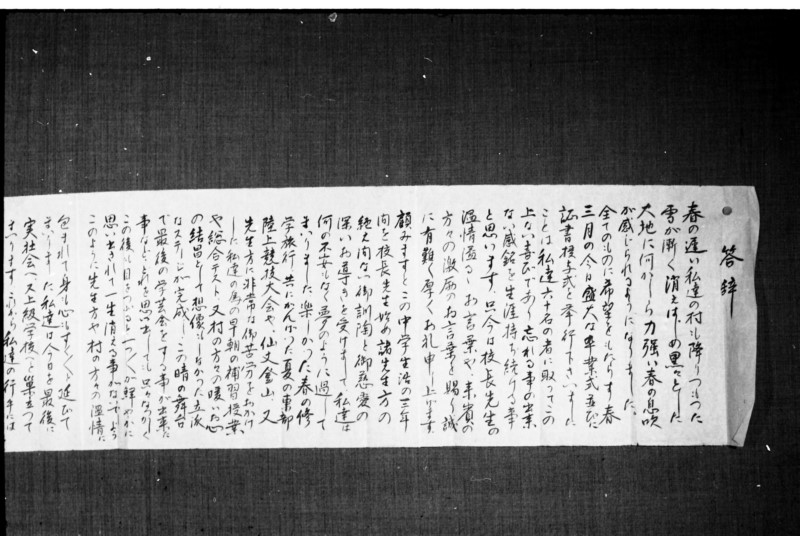 答辞
春の遅い私達の村も降りつもつた
雪が漸く消えはじめ黒々とした
大地に何かしら力強い春の息吹
が感じられるようになりました。
全てのものに希望をもたらす春
三月の今日盛大な卒業式並びに
証書授与式を挙行下さいました
ことは私達六十名の者に取つてこの
上ない喜びであり忘れる事の出来
ない感銘を生涯持ち続ける事
と思います。只今は校長先生の
温情溢るゝお言葉や来賓の
方々の激励のお言葉を賜り誠
に有難く厚くお礼申し上げます。
顧みますとこの中学生活の三年
間を校長先生始め諸先生方の
絶え間ない御訓陶と御慈愛の
深いお導きを受けまして私達は
何の不安もなく夢のように過して
まいりました。楽しかつた春の修
学旅行、共にがんばつた夏の東部
陸上競技大会や、仙丈登山、又
先生方に非常な御苦労をおかけ
した私達の為の早朝の補習授業
や総合テスト、又村の方々の暖い心
の結晶として想像もしなかつた立派
なステージが完成し、この晴の舞台
で最後の学芸会をする事が出来た
事など、どれを思い出しても只々なつかしく
この後も目をつむると一つ一つが鮮やかに
思い出されて一生消える事がないでしよう
このように先生方や村の方々の温情に
包まれて身も心もすくすくと延びて
まいりました私達は今日を最後に
実社会へ又上級学校へと巣立って
まいります。これから私達の行手には